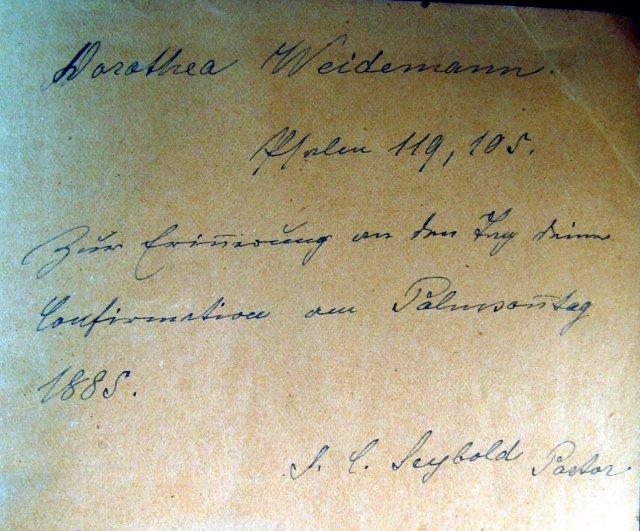 Dorothea Weidemann.
Psalm 119, 105.
Zur Erinnerung an den Tag deiner
Confirmation am Palmsonntag
1885.
J. C. Seybold Pastor.